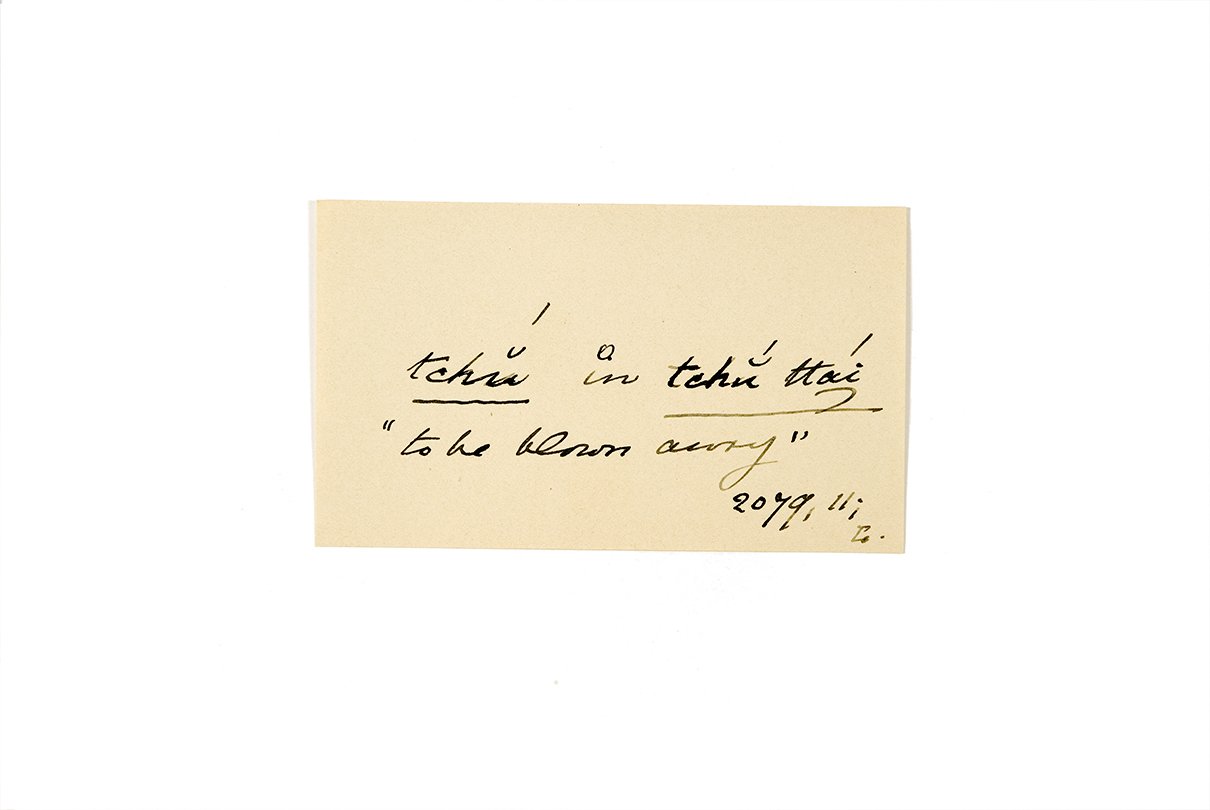 tchŭ́ in tchŭ́ ttái
"to be blown away"
2079, 11;